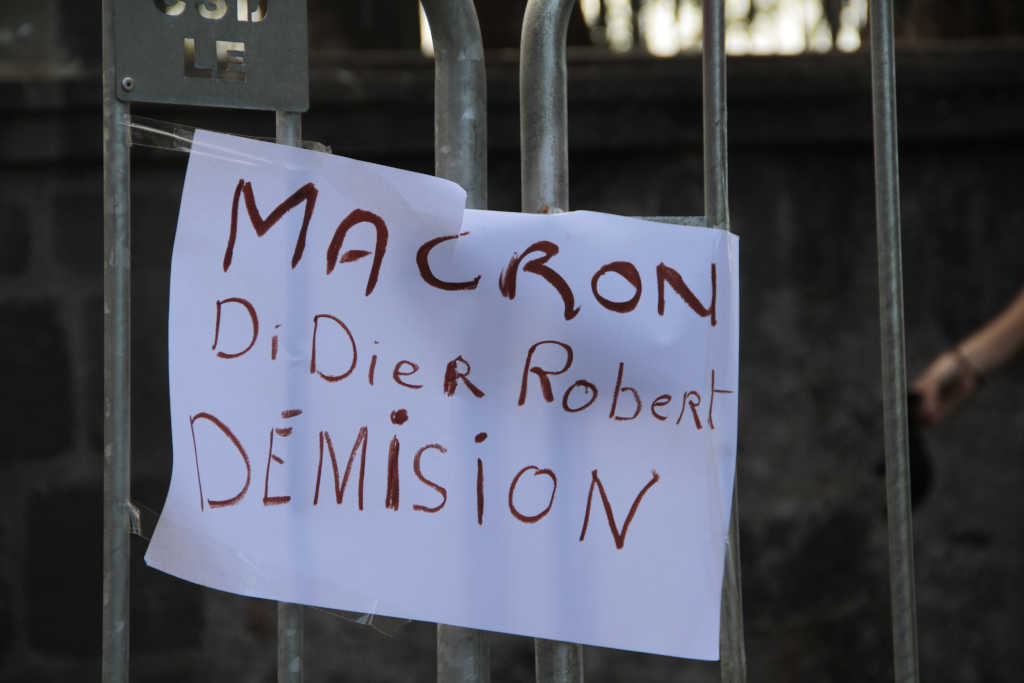 LE
MACRON
DiDier Robert
DÉMiSiON